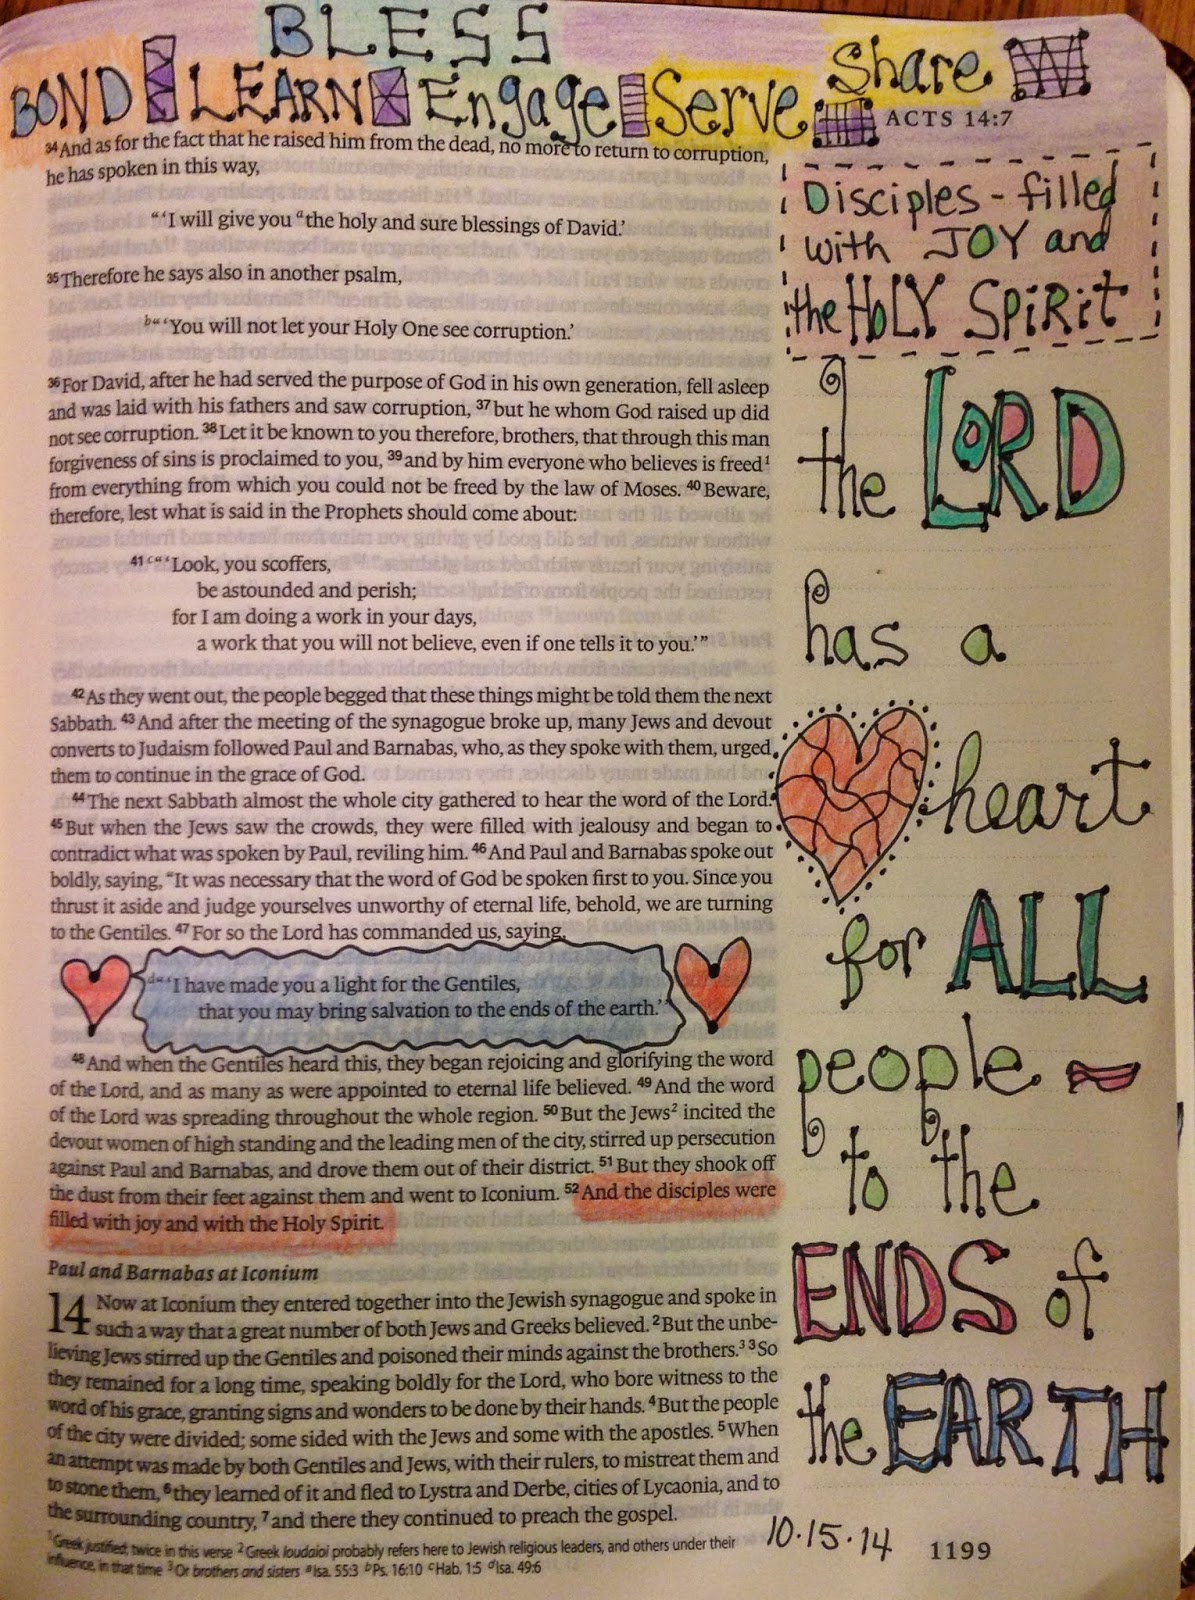 BLESS
BOND LEARN Engage Serve Share
ACTS 14:7
³⁴And as for the fact that he raised him from the dead, no more to return to corruption,
he has spoken in this way,
“‘I will give you ᵃthe holy and sure blessings of David.’
³⁵Therefore he says also in another psalm,
ᵇ“‘You will not let your Holy One see corruption.’
³⁶For David, after he had served the purpose of God in his own generation, fell asleep
and was laid with his fathers and saw corruption, ³⁷but he whom God raised up did
not see corruption. ³⁸Let it be known to you therefore, brothers, that through this man
forgiveness of sins is proclaimed to you, ³⁹and by him everyone who believes is freed¹
from everything from which you could not be freed by the law of Moses. ⁴⁰Beware,
therefore, lest what is said in the Prophets should come about:
⁴¹ᶜ“‘Look, you scoffers,
be astounded and perish;
for I am doing a work in your days,
a work that you will not believe, even if one tells it to you.’”
⁴²As they went out, the people begged that these things might be told them the next
Sabbath. ⁴³And after the meeting of the synagogue broke up, many Jews and devout
converts to Judaism followed Paul and Barnabas, who, as they spoke with them, urged
them to continue in the grace of God.
⁴⁴The next Sabbath almost the whole city gathered to hear the word of the Lord.
⁴⁵But when the Jews saw the crowds, they were filled with jealousy and began to
contradict what was spoken by Paul, reviling him. ⁴⁶And Paul and Barnabas spoke out
boldly, saying, “It was necessary that the word of God be spoken first to you. Since you
thrust it aside and judge yourselves unworthy of eternal life, behold, we are turning
to the Gentiles. ⁴⁷For so the Lord has commanded us, saying,
ᵈ“‘I have made you a light for the Gentiles,
that you may bring salvation to the ends of the earth.’
⁴⁸And when the Gentiles heard this, they began rejoicing and glorifying the word
of the Lord, and as many as were appointed to eternal life believed. ⁴⁹And the word
of the Lord was spreading throughout the whole region. ⁵⁰But the Jews² incited the
devout women of high standing and the leading men of the city, stirred up persecution
against Paul and Barnabas, and drove them out of their district. ⁵¹But they shook off
the dust from their feet against them and went to Iconium. ⁵²And the disciples were
filled with joy and with the Holy Spirit.
Paul and Barnabas at Iconium
14 Now at Iconium they entered together into the Jewish synagogue and spoke in
such a way that a great number of both Jews and Greeks believed. ²But the unbe-
lieving Jews stirred up the Gentiles and poisoned their minds against the brothers.³ ³So
they remained for a long time, speaking boldly for the Lord, who bore witness to the
word of his grace, granting signs and wonders to be done by their hands. ⁴But the people
of the city were divided; some sided with the Jews and some with the apostles. ⁵When
an attempt was made by both Gentiles and Jews, with their rulers, to mistreat them and
to stone them, ⁶they learned of it and fled to Lystra and Derbe, cities of Lycaonia, and to
the surrounding country, ⁷and there they continued to preach the gospel.
¹Greek justified; twice in this verse ²Greek Ioudaioi probably refers here to Jewish religious leaders, and others under their
influence, in that time ³Or brothers and sisters ᵃIsa. 55:3 ᵇPs. 16:10 ᶜHab. 1:5 ᵈIsa. 49:6
Disciples - filled
with JOY and
the HOLY SPIRIT
the LORD
has a
heart
for ALL
people ~
to the
ENDS of
the EARTH
10.15.14
1199